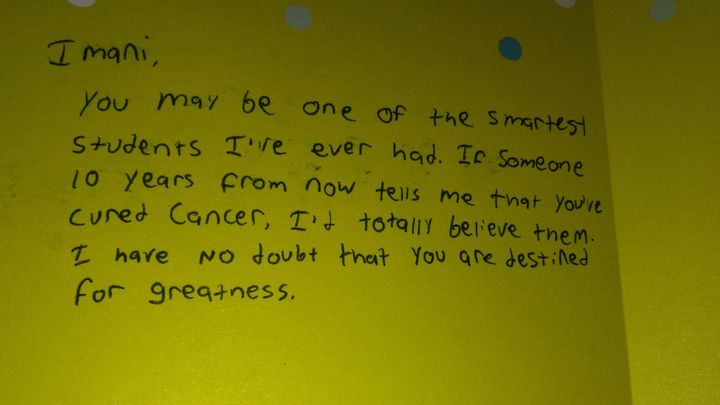 Imani,
You may be one of the smartest
students I've ever had. If someone
10 years from now tells me that you've
cured cancer, I'd totally believe them.
I have no doubt that you are destined
for greatness.